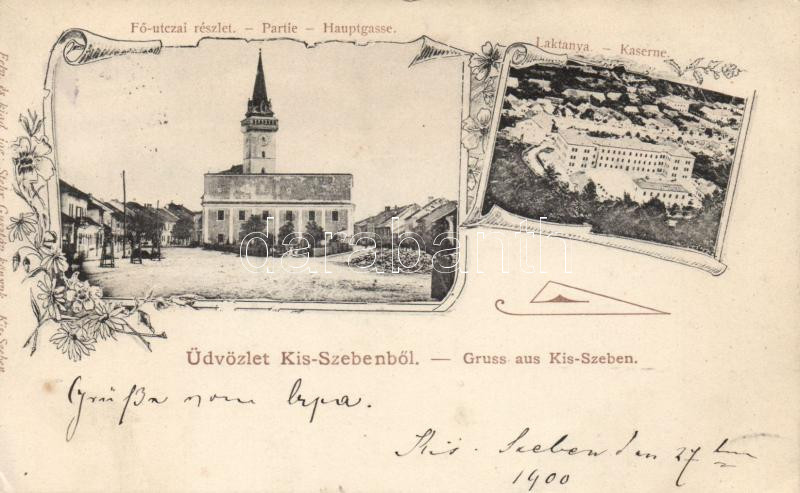 Fő-utczai részlet. – Partie – Hauptgasse.
Laktanya. – Kaserne.
darabanth
Üdvözlet Kis-Szebenből. — Gruss aus Kis-Szeben.
Grüße vom
Kis-Szeben den 27
1900
Kis-Szeben.